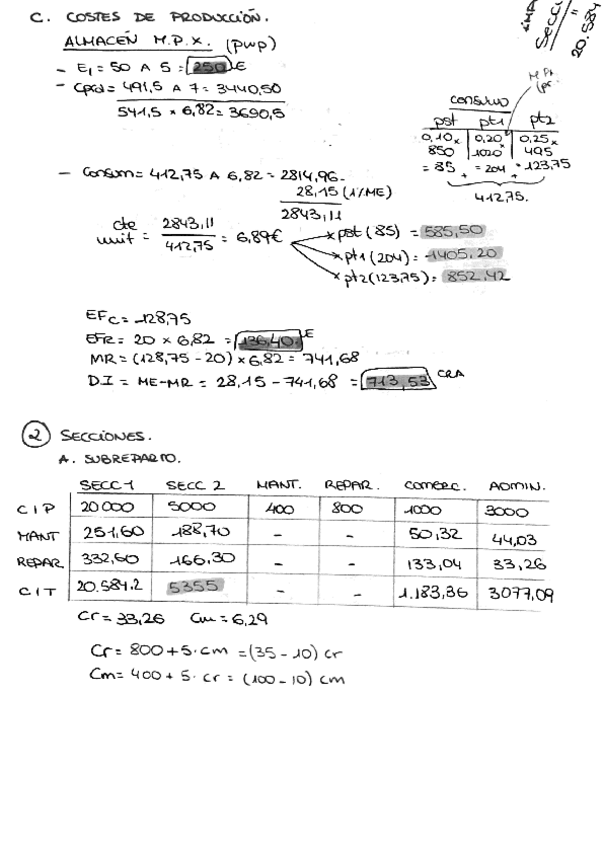 C. COSTES DE PRODUCCIÓN.
ALMACÉN M.P.X. (pwp)
- E₁ = 50 A 5 = 250 E
- Cpcd = 491,5 A 7 = 3440,50
541,5 × 6,82 = 3690,5
consumo
pst pt1 pt2
0,10 × 0,20 × 0,25 ×
850 1020 495
= 85 + = 204 + = 123,75
412,75.
- Consum = 412,75 A 6,82 = 2814,96.
28,15 (1/ME)
2843,11
cte unit = 2843,11 / 412,75 = 6,89€
× pst (85) = 585,50
× pt1 (204) = 1405,20
× pt2 (123,75) = 852,42
EFc = 128,75
EFR = 20 × 6,82 = 136,40 E
MR = (128,75 - 20) × 6,82 = 741,68
DI = ME - MR = 28,15 - 741,68 = 713,53 CRA
2 SECCIONES.
A. SUBREPARTO.
SECC 1 SECC 2 MANT. REPAR. COMERC. ADMIN.
CIP 20000 5000 400 800 1000 3000
MANT 251,60 188,70 - - 50,32 44,03
REPAR 332,60 166,30 - - 133,04 33,26
CIT 20.584,2 5355 - - 1.183,36 3077,09
Cr = 33,26 Cm = 6,29
Cr = 800 + 5 · cm = (35 - 10) cr
Cm = 400 + 5 · cr = (100 - 10) cm
Secci
=
20.584